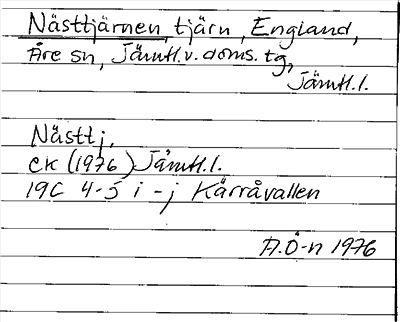 Nästtjärnen, tjärn, England,
Åre sn, Jämtl.v. doms. tg,
Jämtl.l.
Nästtj.
EK (1976) Jämtl.l.
19C 4-5 i-j Kärråvallen
A.Ö-n 1976